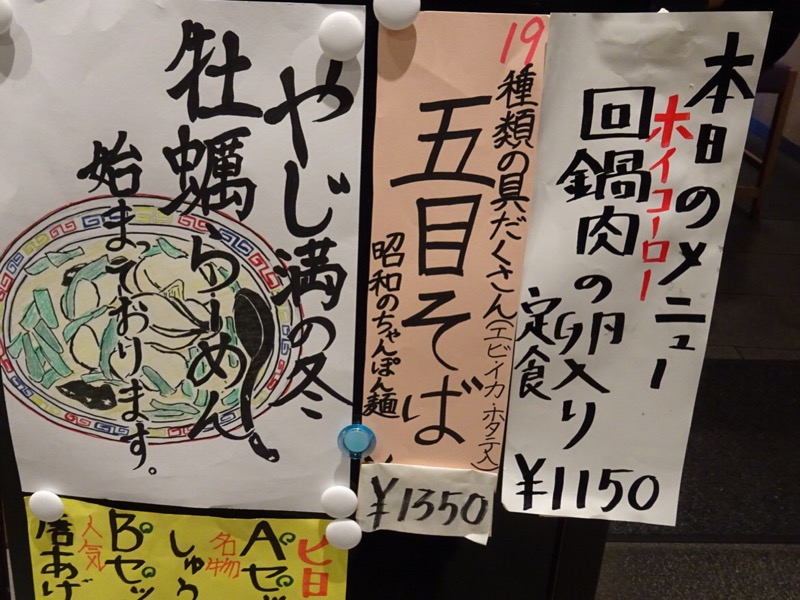 本日のメニュー
ホイコーロー
回鍋肉の卵入り
定食
¥1150
19
種類の具だくさん(エビ・イカ・ホタテ入)
五目そば
昭和のちゃんぽん麺
¥1350
やじ満の冬
牡蠣らーめん
始まっております。
Aセッ
名物
しゅう
Bセッ
人気
唐あげ